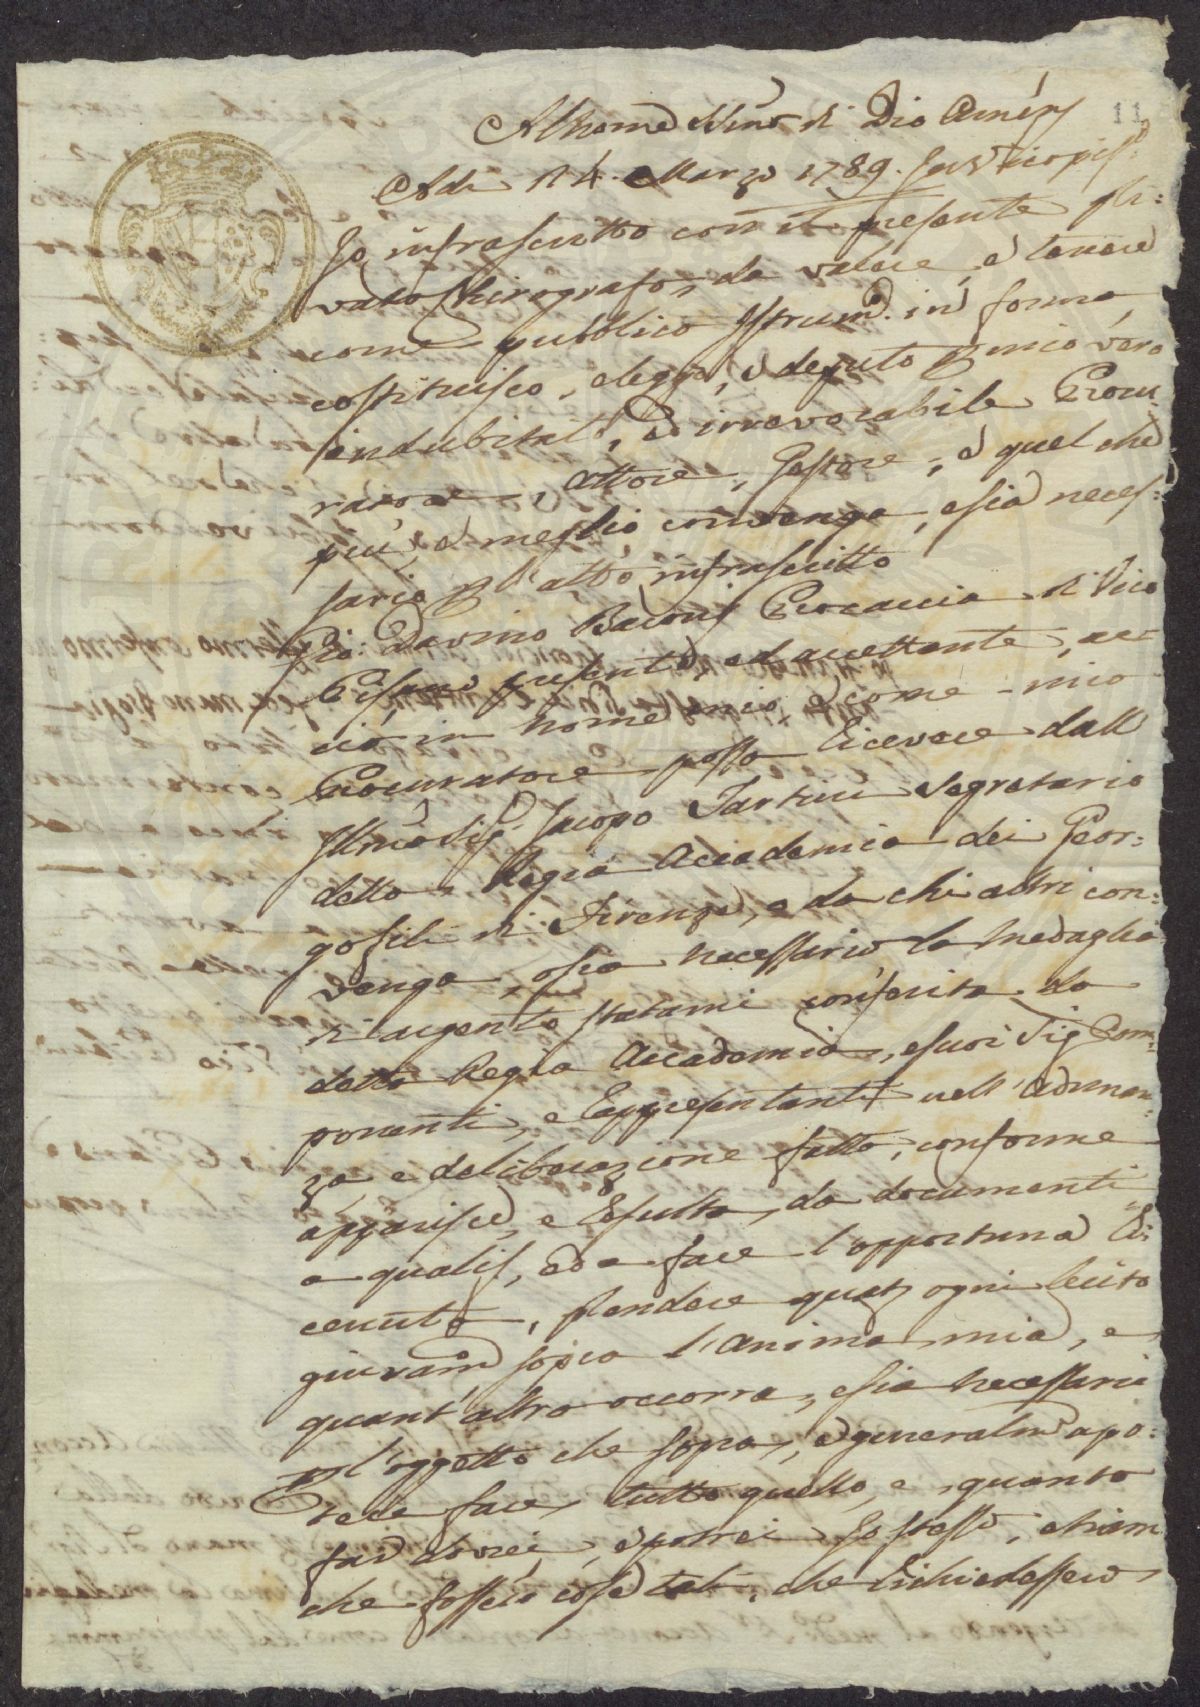 11
Al Nome Sṁo di Dio Amen
Adi 14. Marzo 1789. In Vicopis.º
Io infrascritto con il presente pri:
vato Chirografo, da valere, e tenere
come pubblico Istrumº. in forma,
costituisco, eleggo, e deputo p mio vero
indubitatº, ed irrevocabile Procu
ratore, Attore, Gestore, e quel che
più, e meglio convenga, e sia neces:
sario p l'atto infrascritto
Gio: Davino Baconi Procaccia di Vico
Pisano presente, ed accettante, ac
ciò in nome mio, e come mio
Procuratore possa ricevere dall
Illmo Sig. Jacopo Tartini Segretario
della Regia Accademia dei Geor:
gofili di Firenze, e da chi altri con:
venga, o sia necessario la Medaglia
di argento statami conferita da
detta Regia Accademia, e suoi Sig Com:
ponenti, e Rappresentanti nell' Adunan:
za e deliberazione fatta, conforme
apparisce, e resulta da documenti
a quali, ed a fare l'opportuna Ri:
cevuta, prendere ogni lecito
giuramº sopra l'Anima mia, e
quant'altro occorra, e sia necessario
p l'oggetto che sopra, e generalmº a po:
tere fare tutto quello, e quanto
far dovrei, e potrei Io stesso, etiam
che fossero cose tali, che richiedessero